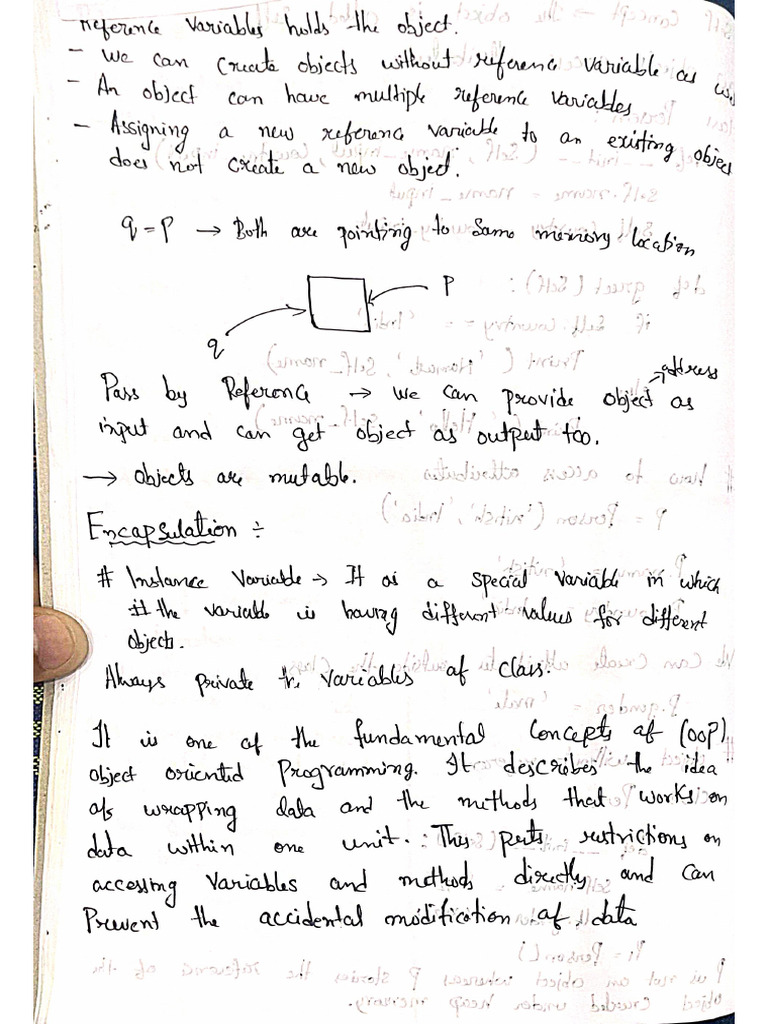 Reference Variables holds the object.
- We can create objects without reference variable as well
- An object can have multiple reference variables
- Assigning a new reference variable to an existing object
does not create a new object.
q = p → Both are pointing to same memory location
p
q
address
Pass by Reference → we can provide object as
input and can get object as output too.
→ objects are mutable.
Encapsulation ÷
# Instance Variable → It is a special variable in which
# the variable is having different values for different
objects.
Always private the variables of Class.
It is one of the fundamental concepts of (OOP)
object oriented programming. It describes the idea
of wrapping data and the methods that works on
data within one unit. This puts restrictions on
accessing variables and methods directly and can
Prevent the accidental modification of data